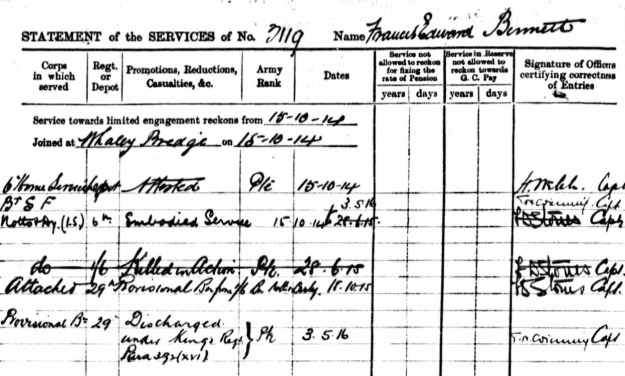 STATEMENT of the SERVICES of No. 7119 Name Francis Edward Bennett
Corps in which served
Regt. or Depot
Promotions, Reductions, Casualties, &c.
Army Rank
Dates
Service not allowed to reckon for fixing the rate of Pension
years days
Service in Reserve not allowed to reckon towards G. C. Pay
years days
Signature of Officers certifying correctness of Entries
Service towards limited engagement reckons from 15-10-14
Joined at Whaley Bridge on 15-10-14
6th Home Service Depot Attested Pte 15-10-14 Capt
3.5.16
Bn S F
Notts & Dy. (I.S) 6th Embodied Service 15 10 14 to 28-6-15 Capt
do 1/6 Killed in Action Pte. 28-6-15 Capt.
Attached 29th Provisional 15.10.15 Capt.
Provisional Bn 29th Discharged
under Kings Regs Pte 3.5.16 Capt
Para 392 (xvi)